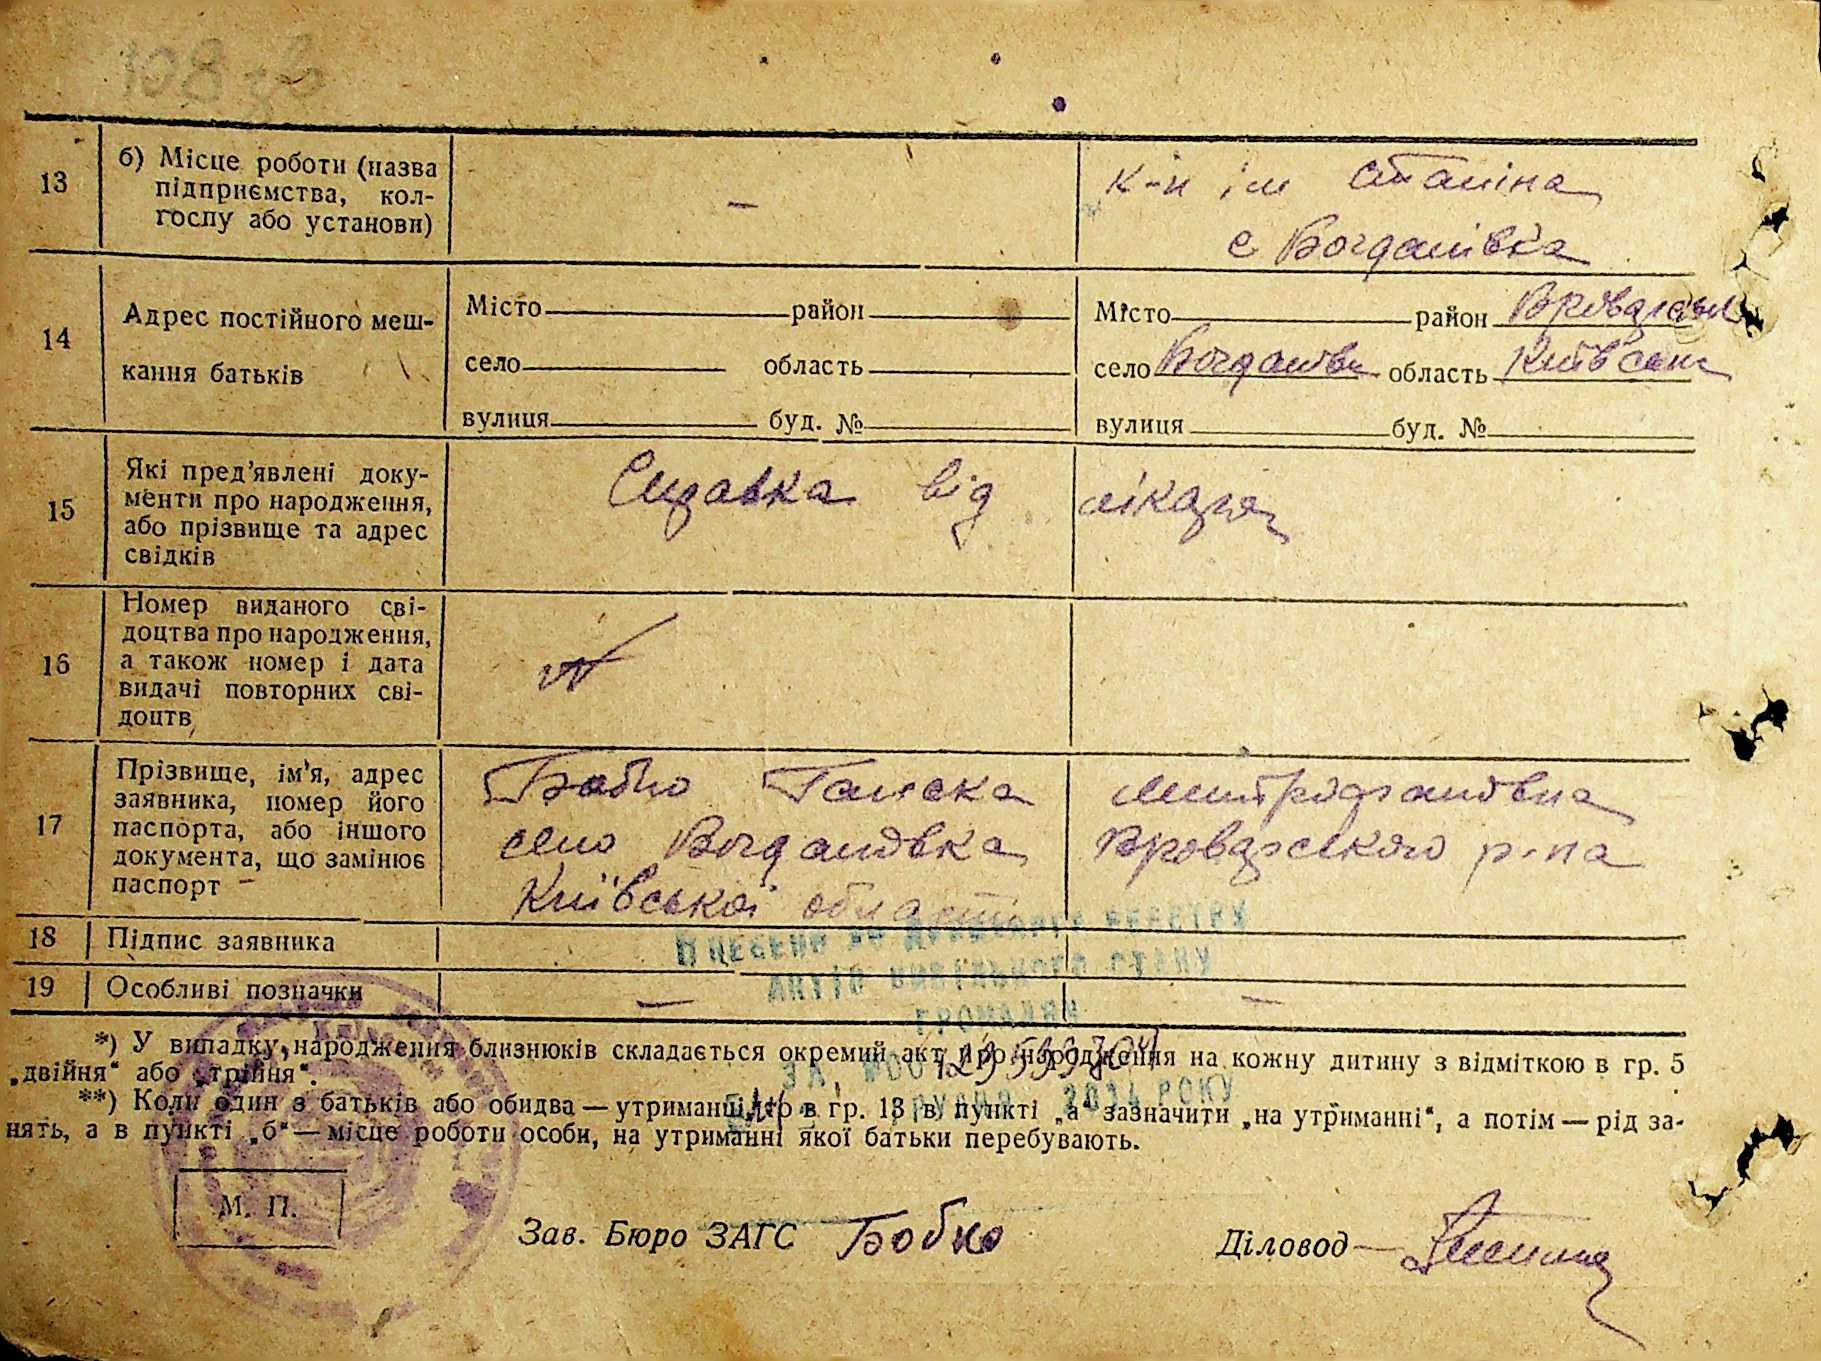 108 зв
13
б) Місце роботи (назва
підприємства, кол-
госпу або установи)
—
к-п ім Сталіна
с Богданівка
14
Адрес постійного меш-
кання батьків
Місто район
село область
вулиця буд. №
Місто район Броварськ
село Богданівка область Київська
вулиця буд. №
15
Які пред’явлені доку-
менти про народження,
або прізвище та адрес
свідків
Справка від лікаря
16
Номер виданого сві-
доцтва про народження,
а також номер і дата
видачі повторних сві-
доцтв
17
Прізвище, ім'я, адрес
заявника, номер його
паспорта, або іншого
документа, що замінює
паспорт —
Бобко Галска Митрофанівна
село Богданівка Броварського р-на
Київської області
18 Підпис заявника
19 Особливі позначки — —
ВНЕСЕНО ДО ДЕРЖАВНОГО РЕЄСТРУ
АКТІВ ЦИВІЛЬНОГО СТАНУ
ГРОМАДЯН
ЗА №00
ГРУДНЯ 2014 РОКУ
*) У випадку народження близнюків складається окремий акт про народження на кожну дитину з відміткою в гр. 5
„двійня“ або „трійня“.
**) Коли один з батьків або обидва — утриманці, то в гр. 13 в пункті „а“ зазначити „на утриманні“, а потім — рід за-
нять, а в пункті „б“ — місце роботи особи, на утриманні якої батьки перебувають.
М. П.
Зав. Бюро ЗАГС Бобко
Діловод —